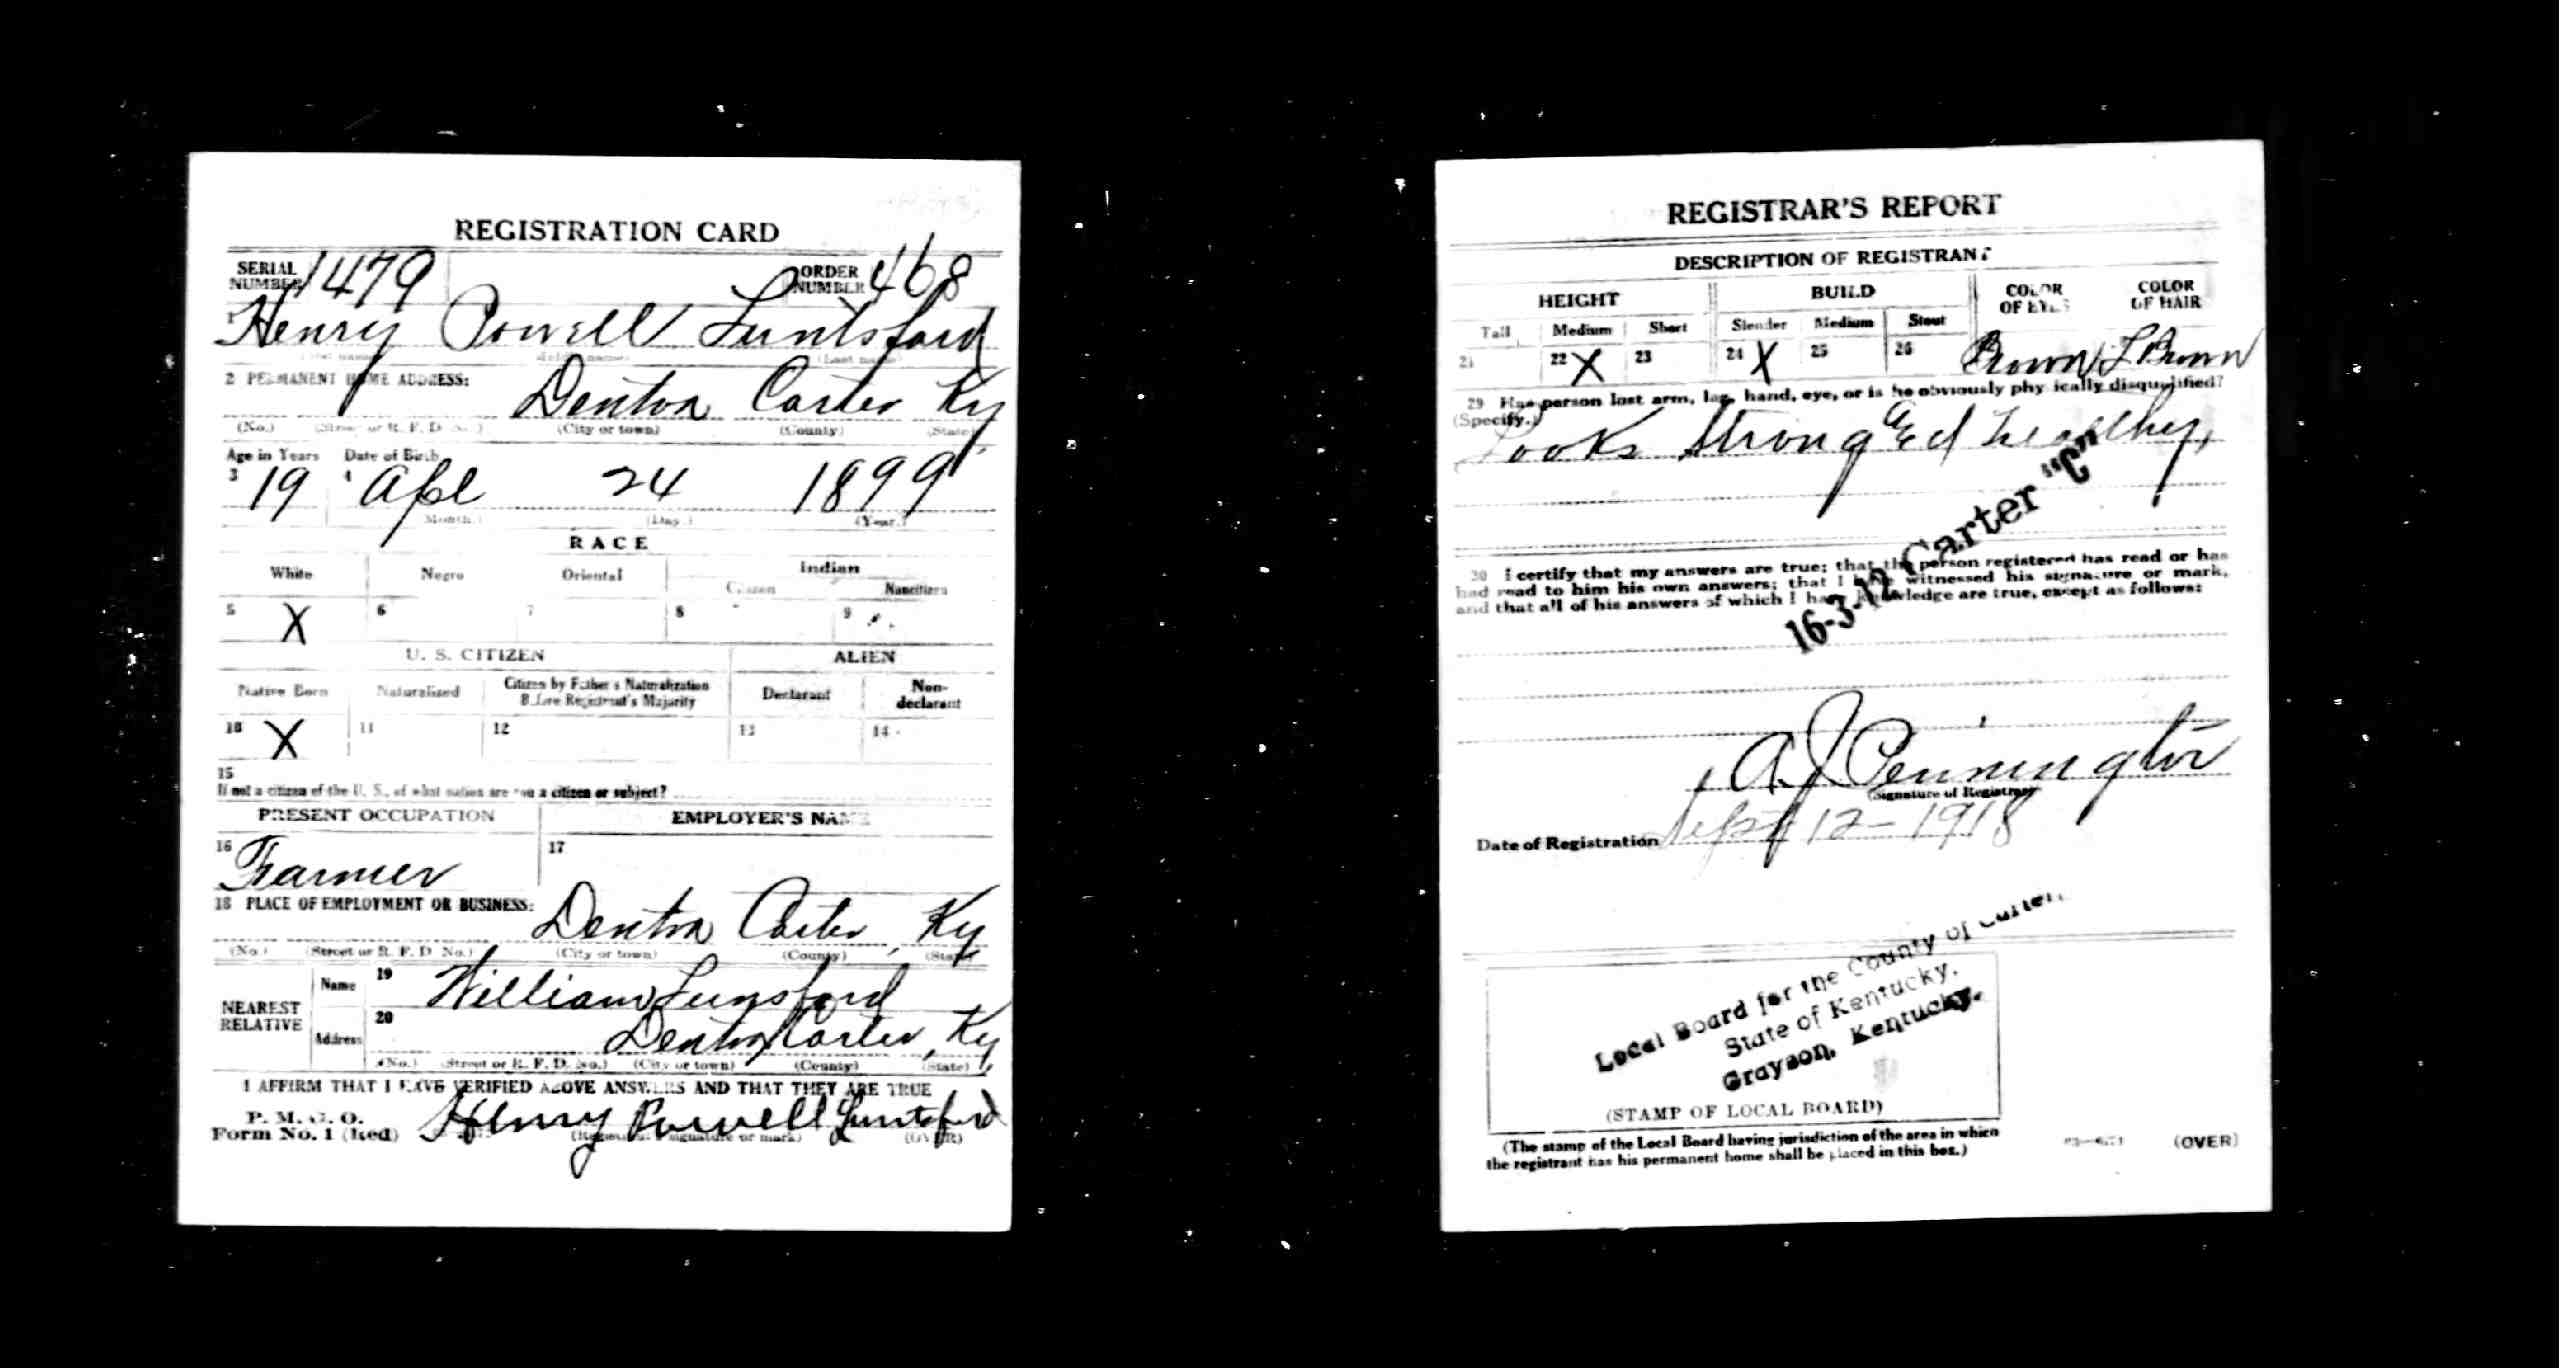 REGISTRATION CARD
SERIAL NUMBER 1479 ORDER NUMBER 468
1 Henry Powell Luntsford
(Last name)
2 PERMANENT HOME ADDRESS:
Denton Carter Ky
(No.) (Street or R. F. D. No.) (City or town) (County) (State)
Age in Years Date of Birth
3 19 4 Apl 24 1899
(Month.) (Day.) (Year.)
RACE
White Negro Oriental Indian
Citizen Noncitizen
5 X 6 7 8 9
U. S. CITIZEN ALIEN
Native Born Naturalized Citizen by Father's Naturalization Before Registrant's Majority Declarant Non-declarant
10 X 11 12 13 14
15
If not a citizen of the U. S., of what nation are you a citizen or subject?
PRESENT OCCUPATION EMPLOYER'S NAME
16 Farmer 17
18 PLACE OF EMPLOYMENT OR BUSINESS:
Denton Carter, Ky
(No.) (Street or R. F. D. No.) (City or town) (County) (State)
NEAREST RELATIVE
Name 19 William Lunsford
Address 20 Denton Carter, Ky
(No.) (Street or R. F. D. No.) (City or town) (County) (State)
I AFFIRM THAT I HAVE VERIFIED ABOVE ANSWERS AND THAT THEY ARE TRUE
P. M. G. O.
Form No. 1 (Red) Henry Powell Luntsford
(Registrant's signature or mark) (OVER)
REGISTRAR'S REPORT
DESCRIPTION OF REGISTRANT
HEIGHT BUILD COLOR OF EYES COLOR OF HAIR
Tall Medium Short Slender Medium Stout
21 22 X 23 24 X 25 26 Brown L Brown
29 Has person lost arm, leg, hand, eye, or is he obviously physically disqualified?
(Specify.)
Looks Strong healthy
16-3-12 Carter "C"
30 I certify that my answers are true; that the person registered has read or has
had read to him his own answers; that I have witnessed his signature or mark,
and that all of his answers of which I have knowledge are true, except as follows:
A J Pennington
(Signature of Registrar)
Date of Registration Sept 12-1918
Local Board for the County of Carter,
State of Kentucky,
Grayson, Kentucky.
(STAMP OF LOCAL BOARD)
(The stamp of the Local Board having jurisdiction of the area in which
the registrant has his permanent home shall be placed in this box.)
(OVER)